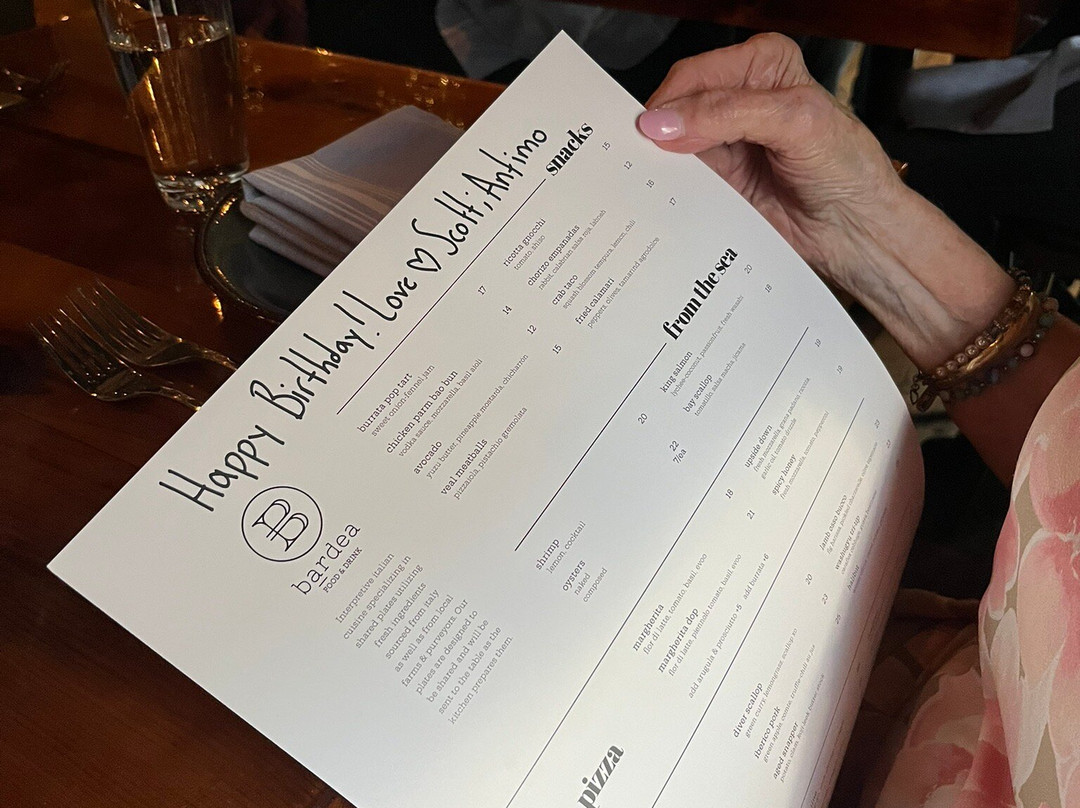 Happy Birthday! Love ♡ Scott, Antimo
B
bardea
FOOD & DRINK
Interpretive italian
cuisine specializing in
shared plates utilizing
fresh ingredients
sourced from italy
as well as from local
farms & purveyors. Our
plates are designed to
be shared and will be
sent to the table as the
kitchen prepares them.
snacks
burrata pop tart 17
sweet onion-fennel jam
chicken parm bao bun 14
vodka sauce, mozzarella, basil aioli
avocado 12
yuzu butter, pineapple mostarda, chicharrón
veal meatballs 15
pizzaiola, pistachio gremolata
ricotta gnocchi 15
tomato, shiso
chorizo empanadas 12
rabbit, calabrian salsa roja, labneh
crab taco 16
squash blossom tempura, lemon, chili
fried calamari 17
peppers, olives, tamarind agrodolce
from the sea
shrimp 20
lemon, cocktail
oysters
naked 22
composed 7/ea
king salmon 20
lychee-coconut, passionfruit, fresh wasabi
bay scallop 18
tomatillo, salsa macha, jicama
pizza
margherita 18
fior di latte, tomato, basil, evoo
margherita dop 21
fior di latte, piennolo tomato, basil, evoo
add arugula & prosciutto +5 add burrata +6
upside down 19
fresh mozzarella, grana padano
garlic oil, tomato drizzle
spicy honey 19
fresh mozzarella, tomato, pepperoni
diver scallop 20
green curry, lemongrass, scallop xo
iberico pork 23
green apple, comte, truffle-chili
aged snapper 29
lamb osso bucco
washugyu
halibut